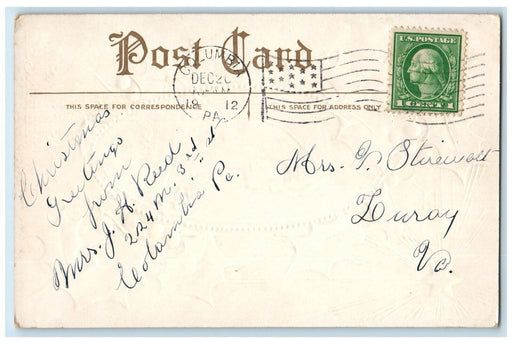 Post Card
COLUMBIA
DEC 20
19 12
PA.
U.S. POSTAGE
1 CENT 1
THIS SPACE FOR CORRESPONDENCE
THIS SPACE FOR ADDRESS ONLY
Christmas
Greetings
from
Mrs. J. H. Reed
224 N. 3rd st
Columbia Pa.
Mrs.
Luray
Va.